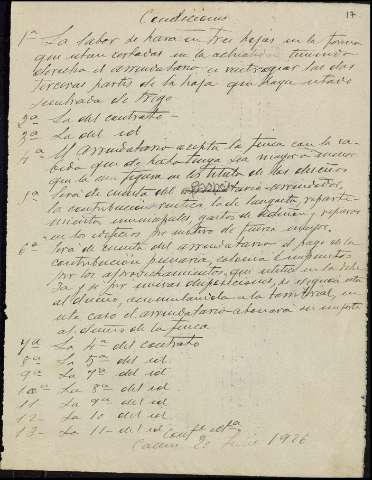 Condiciones 17
1ª La labor se hara en tres hojas en la forma
que estan cortadas en la actualidad teniendo
derecho el arrendatario a las dos
terceras partes de la hoja que haya estado
sembrada de trigo
2ª La del contrato -
3ª La del id
4ª El arrendatario acepta la finca con la cabida
que de hecho tenga sea mayor o menor
que la que figura en los titulos de los dueños
5ª Será de cuenta del arrendador,
la contribución rustica la de langosta, repartimientos
municipales, gastos de y reparos
en los edificios por motivo de fuerza mayor.
6ª Será de cuenta del arrendatario el pago de la
contribución pecuaria, colonia é impuestos
por los aprovechamientos, que utilice en la dehesa
y si por nuevas disposiciones, se esta
al dueño, acumulandola a la territorial, en
este caso el arrendatario abonara su importe
al dueño de la finca
7ª La 4ª del contrato
8ª La 5ª del id
9ª La 7ª del id
10ª La 8ª del id
11 La 9ª del id
12 - La 10 del id
13 - La 11 - del id
20 Junio 1926